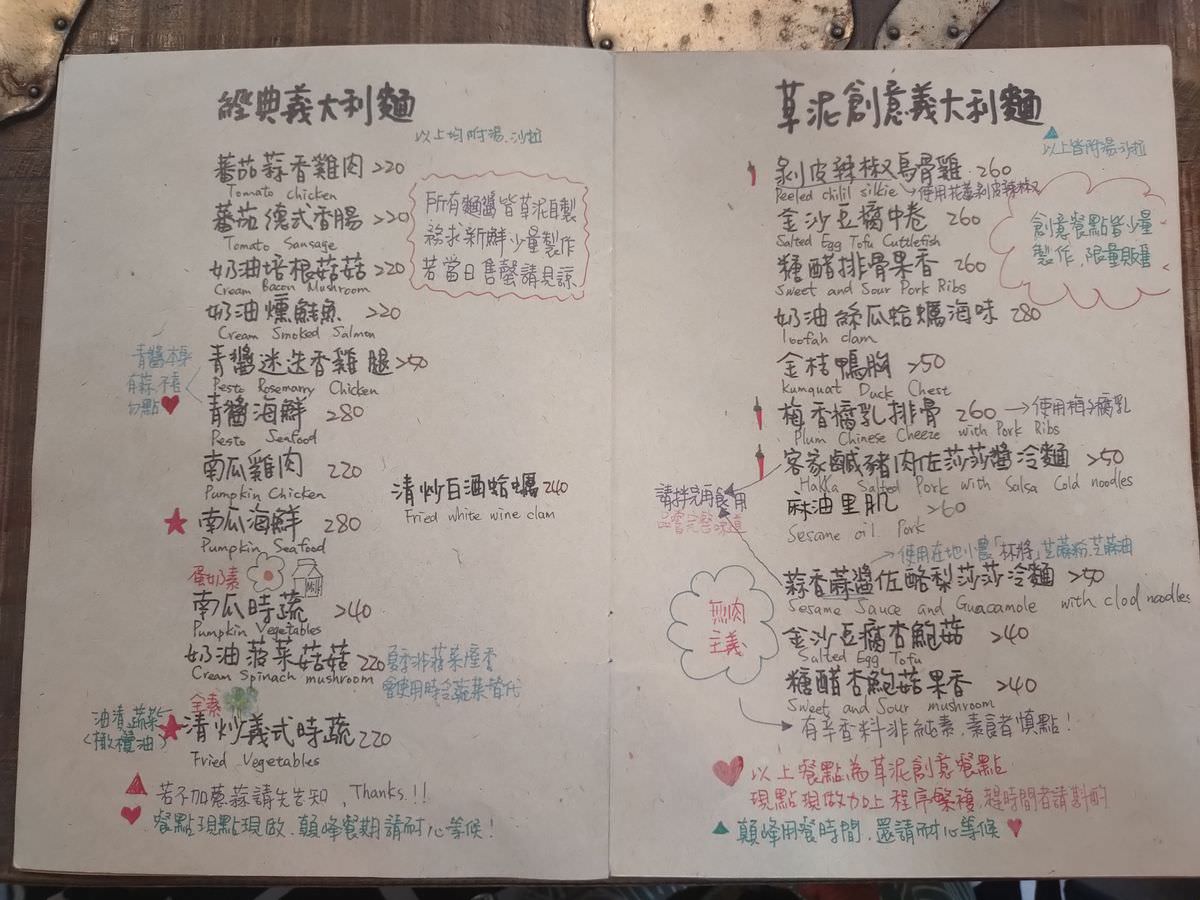 經典義大利麵
以上均附湯、沙拉
蕃茄蒜香雞肉 220
Tomato chicken
蕃茄德式香腸 220
Tomato Sausage
奶油培根菇菇 220
Cream Bacon Mushroom
奶油燻鮭魚 220
Cream Smoked Salmon
所有麵醬皆草泥自製
務求新鮮少量製作
若當日售罄請見諒
青醬本身
有蒜、不喜
勿點
青醬迷迭香雞腿 250
Pesto Rosemarry Chicken
青醬海鮮 280
Pesto Seafood
南瓜雞肉 220
Pumpkin Chicken
南瓜海鮮 280
Pumpkin Seafood
清炒白酒蛤蠣 240
Fried white wine clam
蛋奶素
Milk
南瓜時蔬 240
Pumpkin Vegetables
奶油菠菜菇菇 220
Cream Spinach mushroom
夏季非菠菜產季
會使用時令蔬菜替代
全素
油漬蔬菜
(橄欖油)
清炒義式時蔬 220
Fried Vegetables
若不加蔥蒜請先告知, Thanks!!
餐點現點現做、顛峰餐期請耐心等候!
草泥創意義大利麵
以上皆附湯、沙拉
剝皮辣椒烏骨雞 260
Peeled chilil silkie → 使用花蓮剝皮辣椒
金沙豆腐中卷 260
Salted Egg Tofu Cuttlefish
糖醋排骨果香 260
Sweet and Sour Pork Ribs
奶油絲瓜蛤蠣海味 280
loofah clam
金桔鴨胸 250
Kumquat Duck Chest
創意餐點皆少量
製作, 限量販售
梅香腐乳排骨 260 → 使用梅子腐乳
Plum Chinese Cheeze with Pork Ribs
客家鹹豬肉佐莎莎醬冷麵 250
Hakka Salted Pork with Salsa Cold noodles
請拌完再食用
品嘗完整味道
麻油里肌 260
Sesame oil Pork
→ 使用在地小農「杯將」芝麻粉、芝麻油
蒜香蔴醬佐酪梨莎莎冷麵 250
Sesame Sauce and Guacamole with clod noodles
無肉
主義
金沙豆腐杏鮑菇 240
Salted Egg Tofu
糖醋杏鮑菇果香 240
Sweet and Sour mushroom
→ 有辛香料非純素, 素食者慎點!
以上餐點為草泥創意餐點
現點現做加上程序繁複, 趕時間者請斟酌
顛峰用餐時間, 還請耐心等候